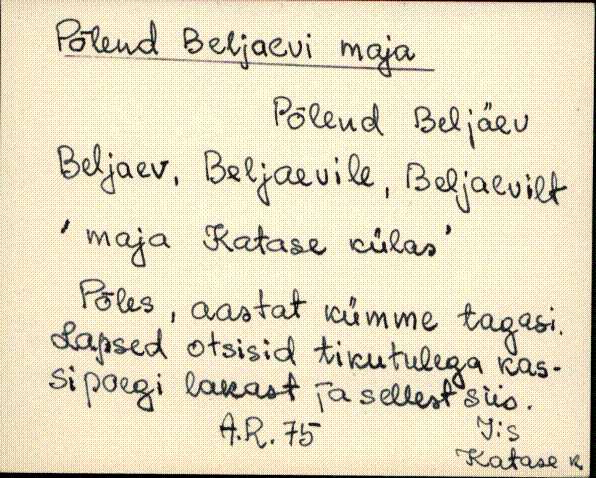 Põlend Beljaevi maja
Põlend Beljäev
Beljaev, Beljaevile, Beljaevilt
'maja Katase külas'
Põles, aastat kümme tagasi.
Lapsed otsisid tikutulega kas-
sipoegi lakast ja sellest siis.
A.R. 75 Iis
Katase k